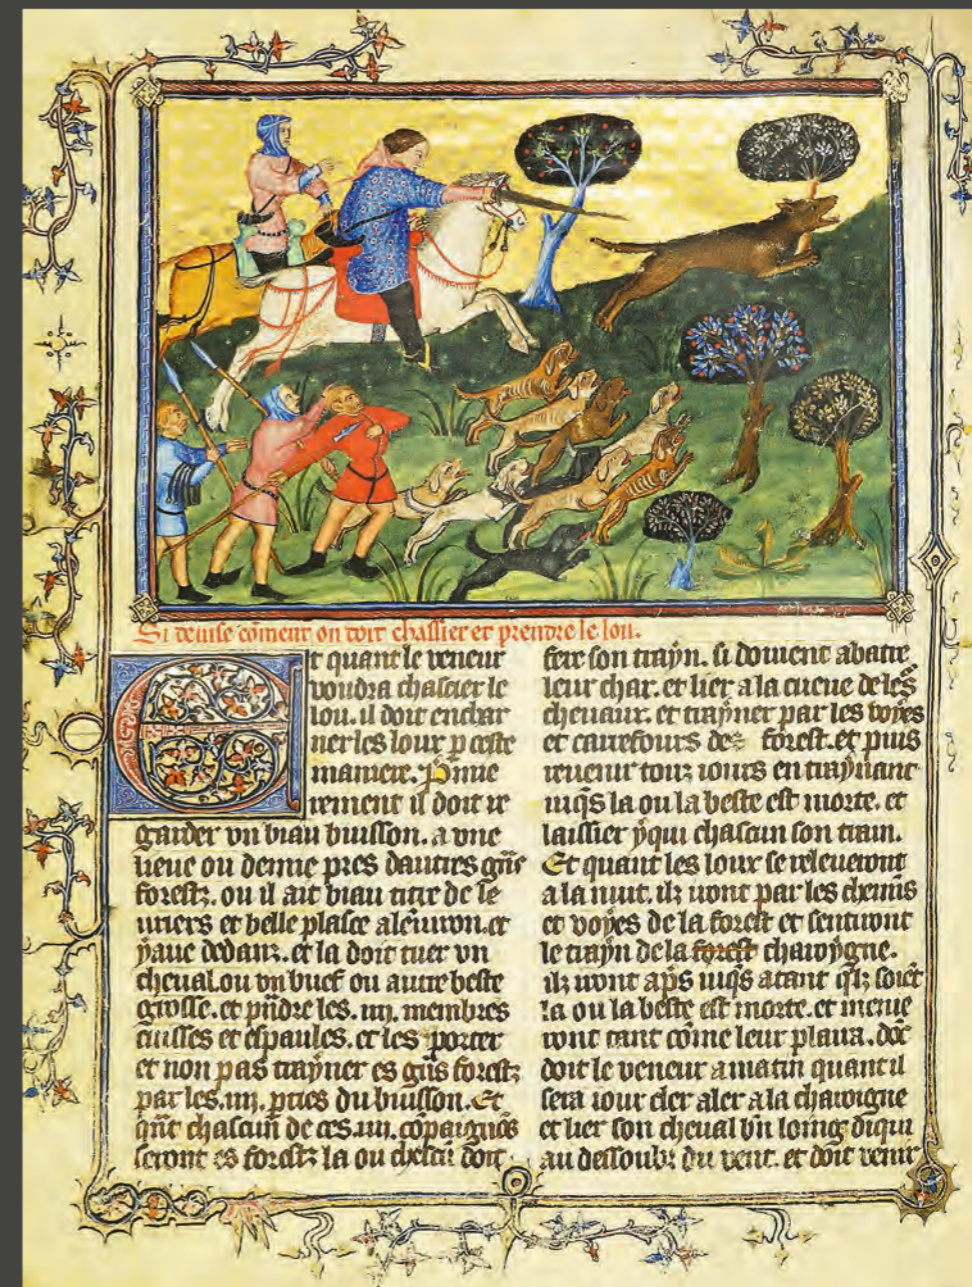 Ci deuise cõment on doit chassier et prendre le lou.
Et quant le veneur
voudra chascier le
lou. il doit enchar
ner les loux p ceste
maniere. Pmie
rement il doit re
garder un biau buisson. a une
lieue ou demie pres dautres gñs
forestz. ou il ait biau titre de le
uriers et belle plasce alẽuiron. et
yaue dedanz. et la doit tuer un
cheual. ou un buef ou autre beste
grosse. et pñdre les .iiii. membres
cuisses et espaules. et les porter
et non pas traÿner es gñs forestz
par les .iiii. pties du buisson. Et
qñt chascun de ces .iiii. cõpaignõs
seront es forestz la ou chescũ doit
fere son traÿn. si doiuent abatre
leur char. et lier a la cueue de les
cheuaux. et traÿner par les voÿes
et carrefours des forest. et puis
reuenir touz iours en traÿnant
iuqs la ou la beste est morte. et
laissier ÿqui chascun son train.
Et quant les loux se releueront
a la nuit. ilz iront par les chemĩs
et voÿes de la forest et sentiront
le traÿn de la forest charoÿgne.
ilz iront aps iuqs atant qlz soiẽt
la ou la beste est morte. et menie
ront tant cõme leur plaira. dõc
doit le veneur a matin quant il
sera iour cler aler a la charoigne
et lier son cheual bñ loing diqui
au dessoubz du vent. et doit venir